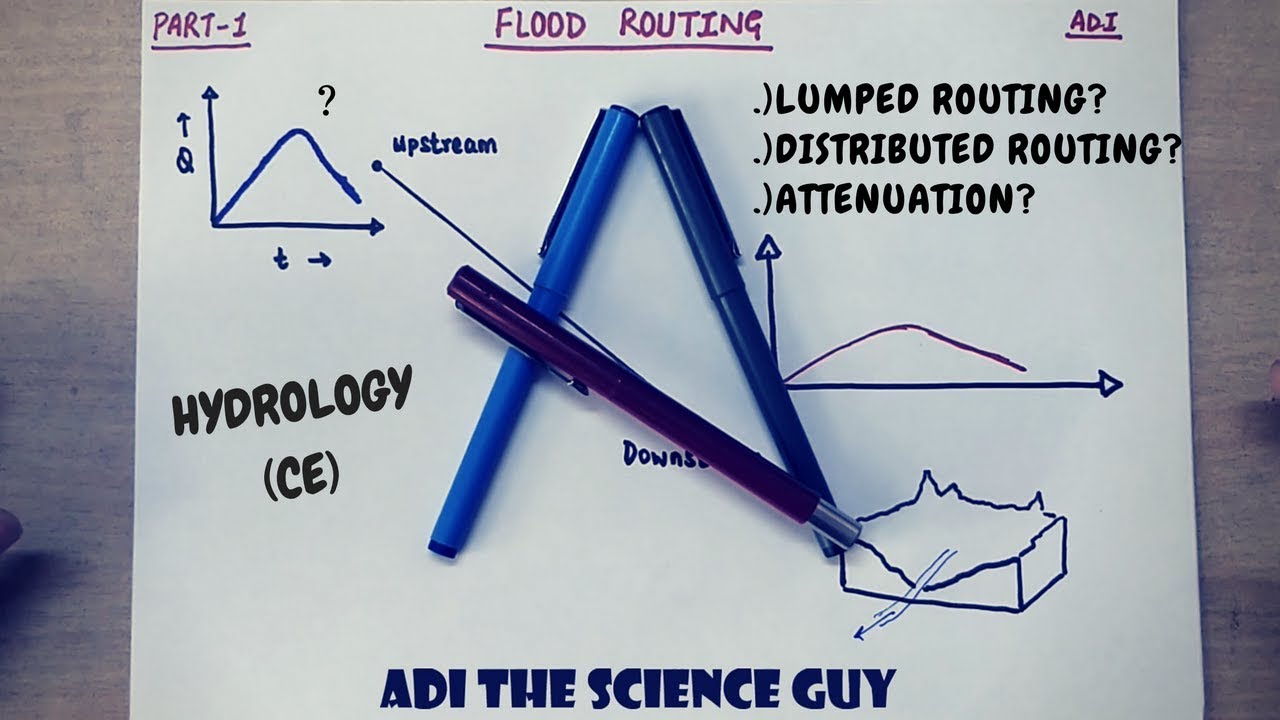 PART-1
FLOOD ROUTING
ADI
?
↑
Q
t →
upstream
.)LUMPED ROUTING?
.)DISTRIBUTED ROUTING?
.)ATTENUATION?
HYDROLOGY
(CE)
ADI THE SCIENCE GUY